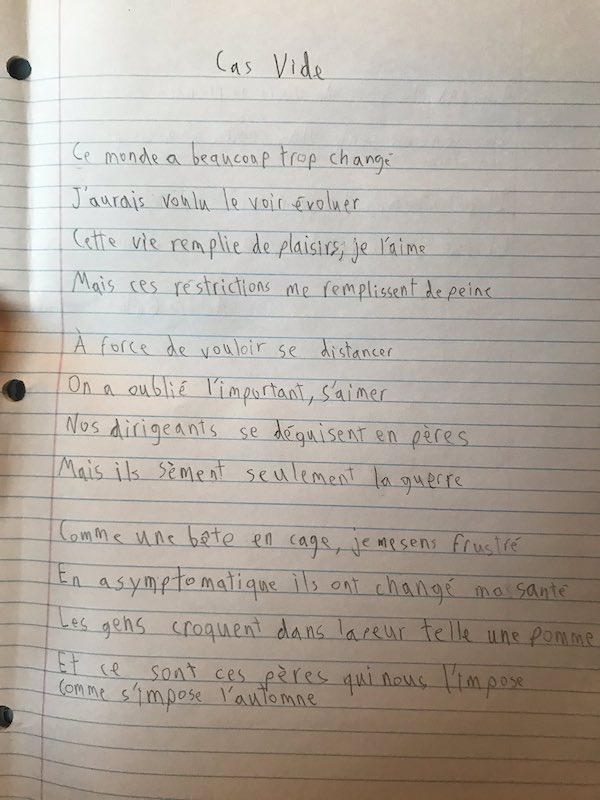 Cas Vide
Ce monde a beaucoup trop changé
J'aurais voulu le voir évoluer
Cette vie remplie de plaisirs, je l'aime
Mais ces restrictions me remplissent de peine
À force de vouloir se distancer
On a oublié l'important, s'aimer
Nos dirigeants se déguisent en pères
Mais ils sèment seulement la guerre
Comme une bête en cage, je me sens frustré
En asymptomatique ils ont changé ma santé
Les gens croquent dans la peur telle une pomme
Et ce sont ces pères qui nous l'impose
Comme s'impose l'automne